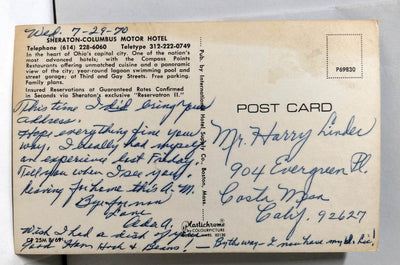 Wed. 7-29-70
SHERATON-COLUMBUS MOTOR HOTEL
Telephone (614) 228-6060 Teletype 312-222-0749
In the heart of Ohio's capital city. One of the nation's
most advanced hotels; with the Compass Points
Restaurants offering unmatched cuisine and a panoramic
view of the city; year-round lagoon swimming pool and
street garage; at Third and Gay Streets. Free parking.
Family plans.
Insured Reservations at Guaranteed Rates Confirmed
in Seconds via Sheraton's exclusive "Reservatron II."
This time I did bring your
address.
Hope everything fine your
way. I really had myself
an experience last Friday.
Tell you when I see you.
Leaving for home this A.M.
Bye for now
Love
Ada A.
Wish I had a dish of your
good Ham Hock & Beans!
CP 25M 8/691
Pub. by International Hotel Supply Co., Boston, Mass.
Plastichrome
COLOURPICTURE
P69830
POST CARD
Mr. Harry Linder
904 Evergreen Pl.
Costa Mesa
Calif. 92627
By the way - I now have my